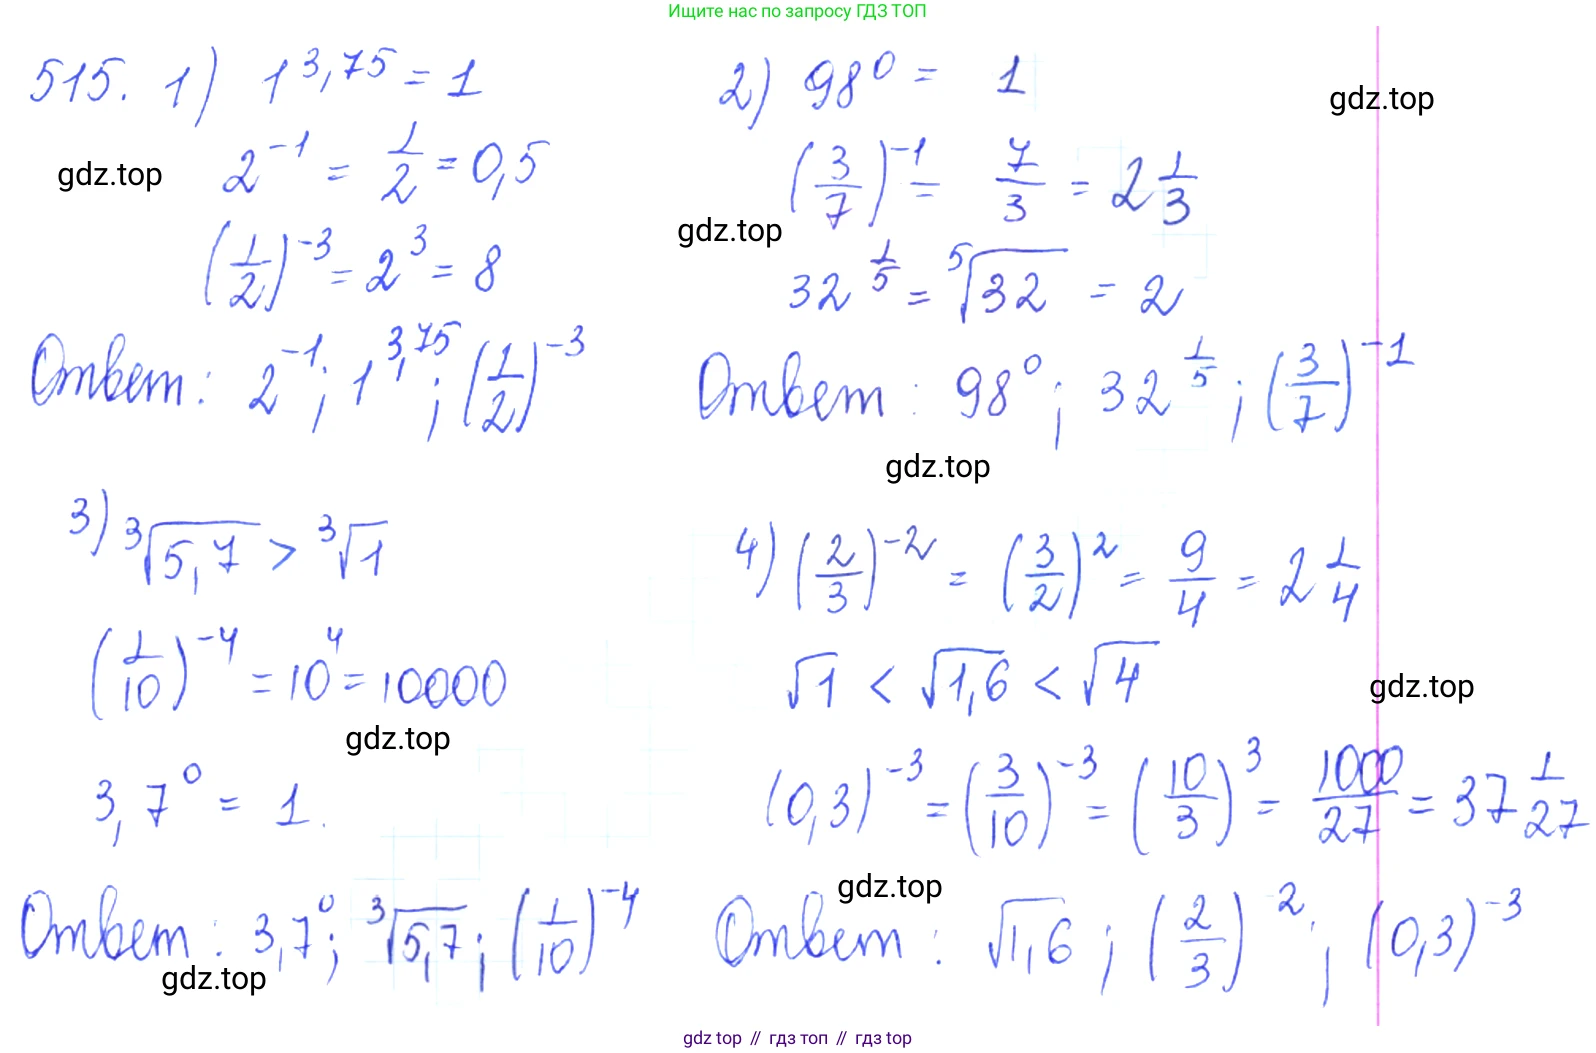 Ищите нас по запросу ГДЗ ТОП
515. 1) 1^{3,75} = 1
2^{-1} = \frac{1}{2} = 0,5
(\frac{1}{2})^{-3} = 2^3 = 8
Ответ: 2^{-1}; 1^{3,75}; (\frac{1}{2})^{-3}
2) 98^0 = 1
(\frac{3}{7})^{-1} = \frac{7}{3} = 2\frac{1}{3}
32^{\frac{1}{5}} = \sqrt[5]{32} = 2
Ответ: 98^0; 32^{\frac{1}{5}}; (\frac{3}{7})^{-1}
3) \sqrt[3]{5,7} > \sqrt[3]{1}
(\frac{1}{10})^{-4} = 10^4 = 10000
3,7^0 = 1.
Ответ: 3,7^0; \sqrt[3]{5,7}; (\frac{1}{10})^{-4}
4) (\frac{2}{3})^{-2} = (\frac{3}{2})^2 = \frac{9}{4} = 2\frac{1}{4}
\sqrt{1} < \sqrt{1,6} < \sqrt{4}
(0,3)^{-3} = (\frac{3}{10})^{-3} = (\frac{10}{3})^3 = \frac{1000}{27} = 37\frac{1}{27}
Ответ: \sqrt{1,6}; (\frac{2}{3})^{-2}; (0,3)^{-3}
gdz.top
gdz.top
gdz.top
gdz.top
gdz.top
gdz.top
gdz.top
gdz.top
gdz top // гдз топ // гдз top